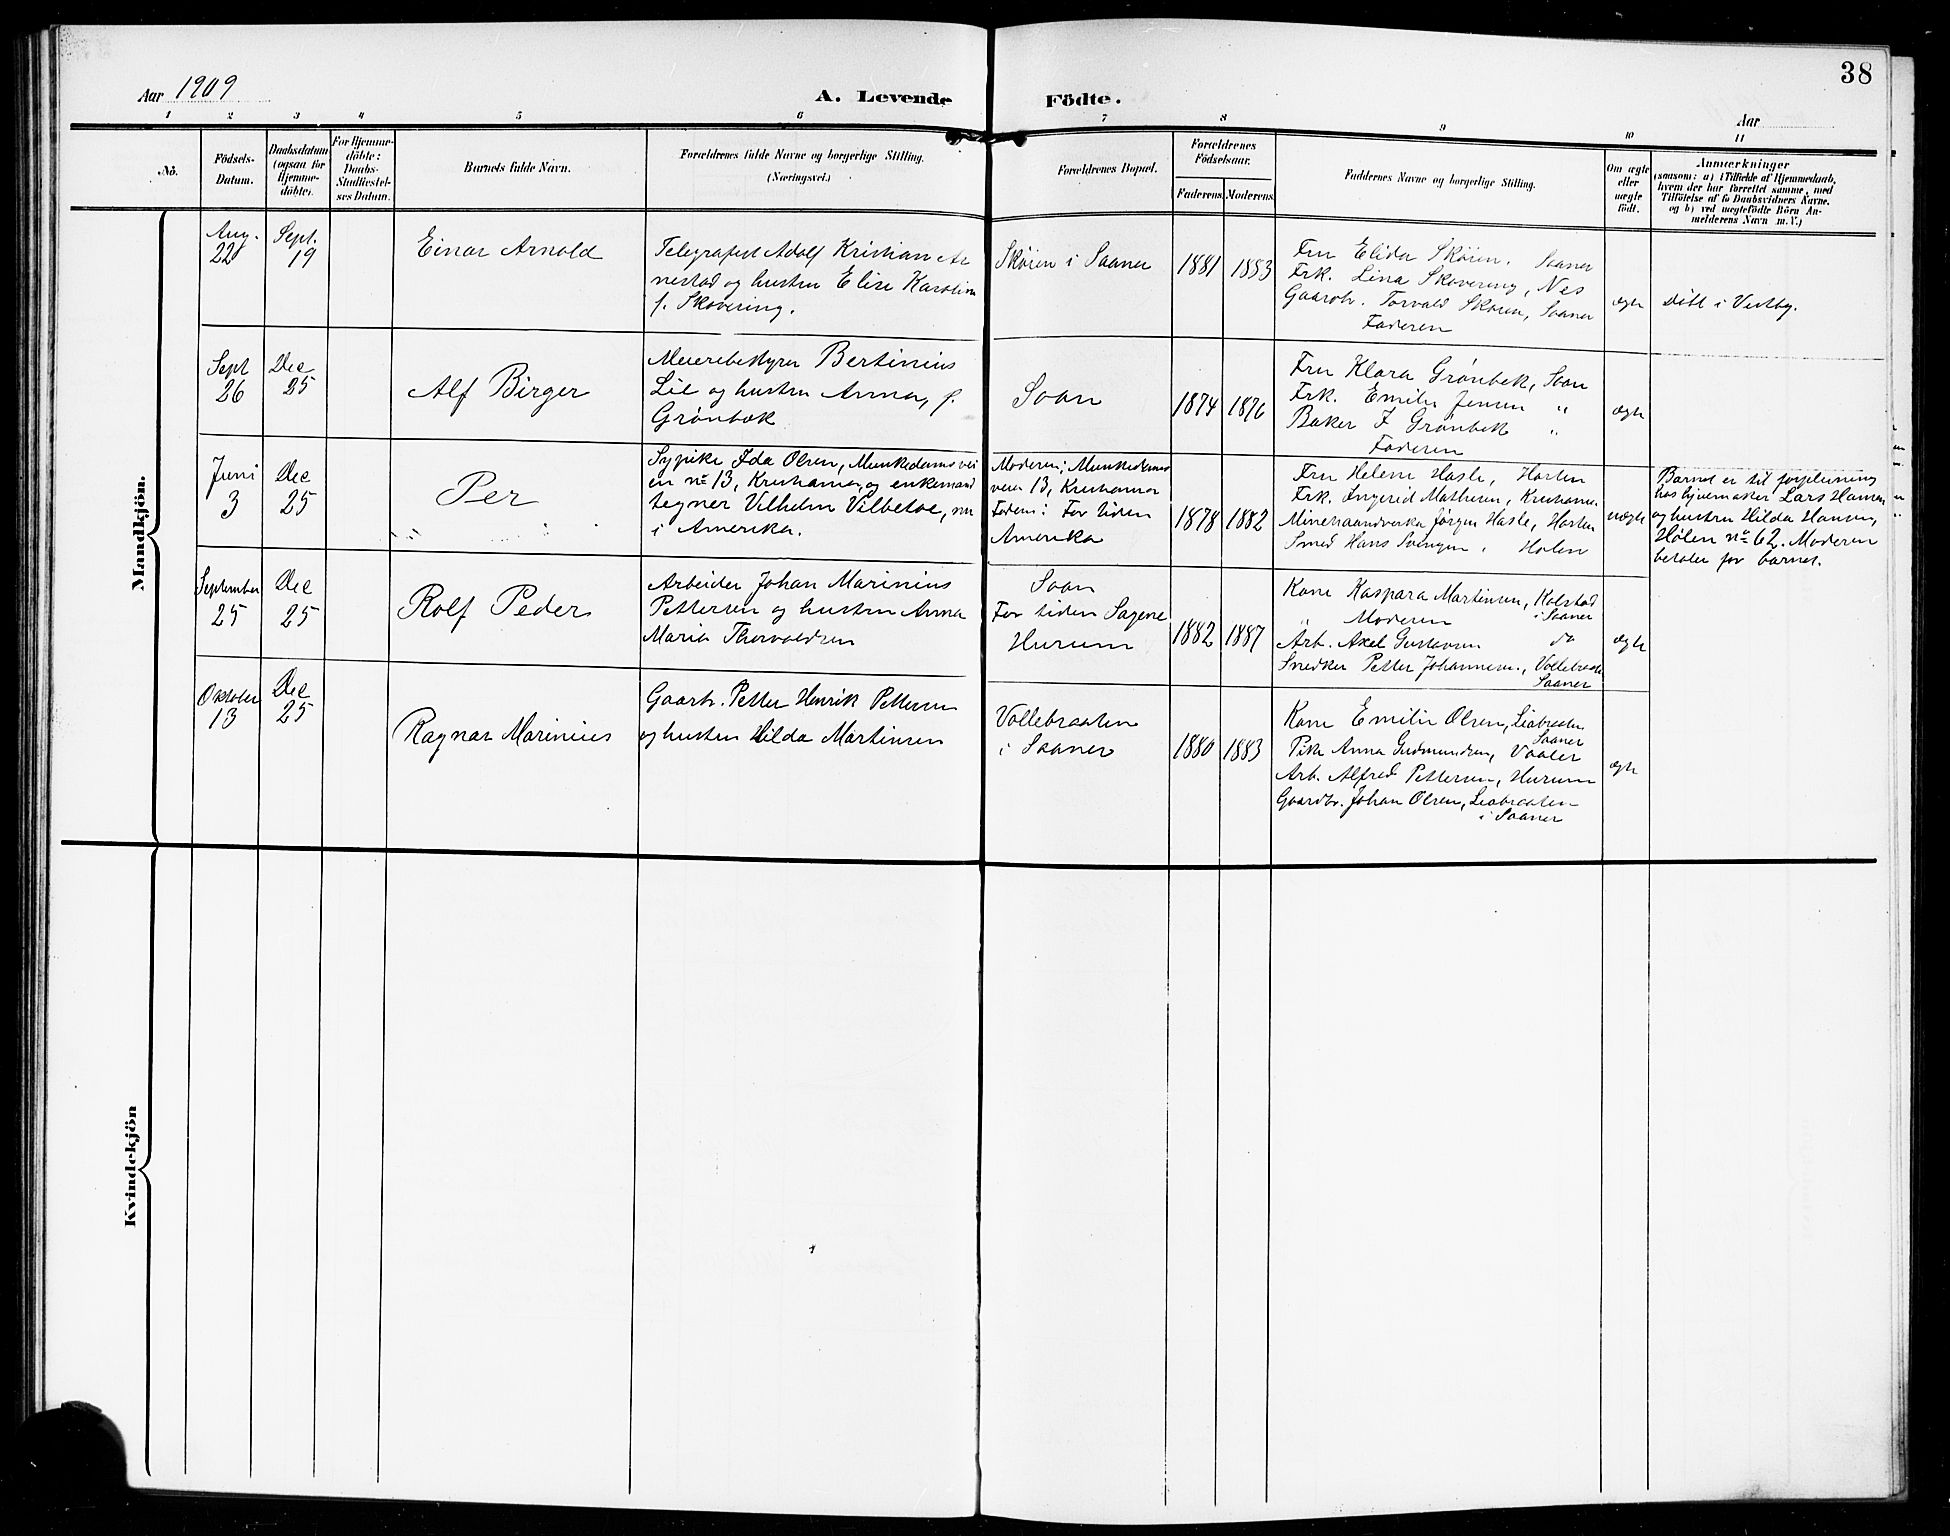 38
Aar 1909
A. Levende Födte.
Aar
1 2 3 4 5 6 7 8 9 10 11
No.
Födsels-
Datum.
Daabsdatum
(ogsaa for
Hjemme-
döbte).
For Hjemme-
döbte:
Daabs-
Stadfæstel-
ses Datum.
Barnets fulde Navn.
Forældrenes fulde Navne og borgerlige Stilling.
(Næringsvei.)
Forældrenes Bopæl.
Forældrenes
Födselsaar.
Faderens. Moderens.
Faddernes Navne og borgerlige Stilling.
Om ægte
eller
uægte
födt.
Anmærkninger
(saasom: a) i Tilfælde af Hjemmedaab,
hvem der har forrettet samme, med
Tilföielse af to Daabsvidners Navne.
og b) ved uægtefödte Börn An-
melderens Navn m. V.)
Mandkjön.
Aug.
22
Sept.
19
Einar Arnold
Telegrafist Adolf Kristian Ar
nestad og hustru Elise Karoline
f. Skovering.
Skøien i Saaner
1881
1883
Fru Elida Skøien. Saaner
Frk. Lina Skovering, Nes
Gaardbr. Torvald Skøien, Saaner
Faderen
ægte
Døbt i Vestby.
Sept
26
Dec
25
Alf Birger
Meieribestyrer Bertinius
Lie og hustru Anna, f.
Grønbæk
Soon
1874
1876
Fru Klara Grønbek, Soon
Frk. Emilie Jensen "
Baker F Grønbek "
Faderen
ægte
Juni
3
Dec
25
Per
Sypike Ida Olsen, Munkedamsvei
en no 13, Kristiania, og enkemand
tegner Vilhelm Vilbetoe, nu
i Amerika.
Moderen: Munkedams
veien 13, Kristiania
Faderen: For tiden
Amerika
1878
1882
Fru Helene Hasle, Horten
Frk. Ingerid Mathisen, Kristiania
Minehaandverker Jørgen Hasle, Horten
Smed Hans Svingen, Holen
uægte
Barnet er til forpleining
hos hjuemaker Lars Hansen
og hustru Hilda Hansen,
Hølen no 62. Moderen
betaler for barnet.
September
25
Dec
25
Rolf Peder
Arbeider Johan Marinius
Pettersen og hustru Anna
Maria Thorvaldsen
Soon
For tiden Sagene
Hurum
1882
1887
Kone Kaspara Martinsen, Kolstad
i Saaner
" Moderen
Arb. Axel Gustavsen do
Snedker Petter Johannesen, Vollebraaten
Saaner
ægte
Oktober
13
Dec
25
Ragnar Marinius
Gaarbr. Petter Henrik Pettersen
og hustru Hilda Martinsen
Vollebraaten
i Saaner
1880
1883
Kone Emilie Olsen, Liabraaten
Saaner
Pike Anna Gudmundsen, Vaaler
Arb. Alfred Pettersen, Hurum
Gaardbr. Johan Olsen, Liabraaten
i Saaner
ægte
Kvindekjön